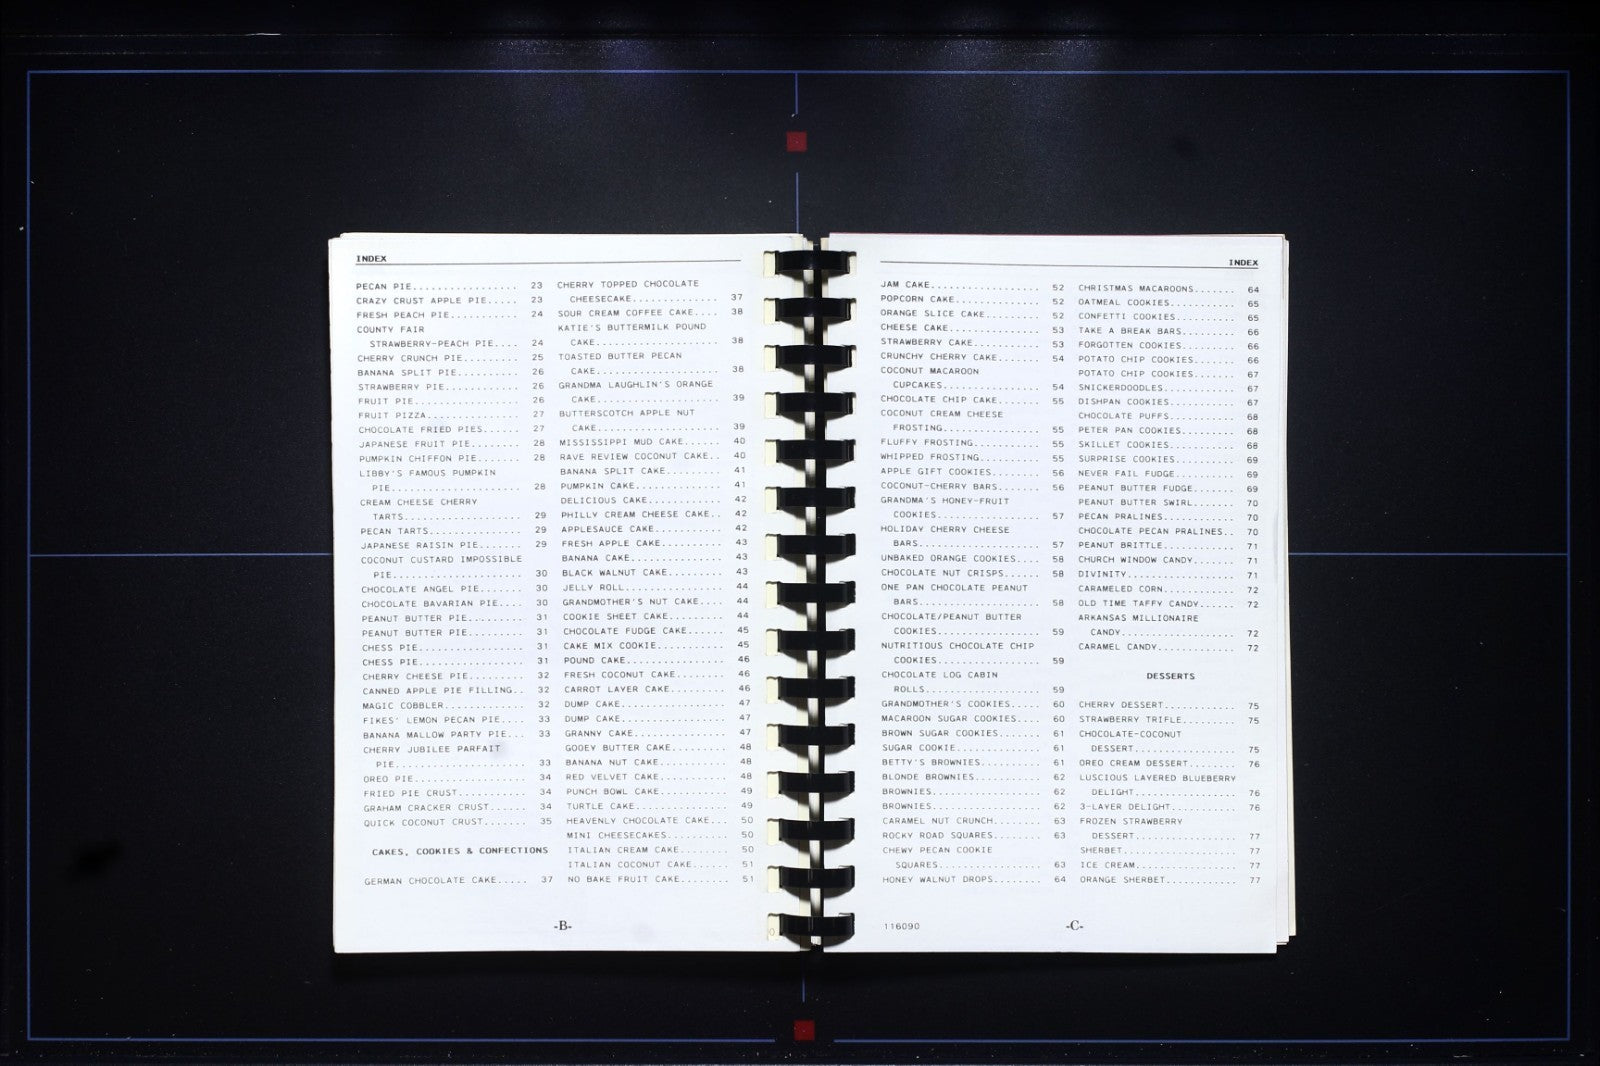 INDEX
PECAN PIE................. 23
CRAZY CRUST APPLE PIE..... 23
FRESH PEACH PIE........... 24
COUNTY FAIR
STRAWBERRY-PEACH PIE.... 24
CHERRY CRUNCH PIE......... 25
BANANA SPLIT PIE.......... 26
STRAWBERRY PIE............ 26
FRUIT PIE................. 26
FRUIT PIZZA............... 27
CHOCOLATE FRIED PIES...... 27
JAPANESE FRUIT PIE........ 28
PUMPKIN CHIFFON PIE....... 28
LIBBY'S FAMOUS PUMPKIN
PIE..................... 28
CREAM CHEESE CHERRY
TARTS................... 29
PECAN TARTS............... 29
JAPANESE RAISIN PIE....... 29
COCONUT CUSTARD IMPOSSIBLE
PIE..................... 30
CHOCOLATE ANGEL PIE....... 30
CHOCOLATE BAVARIAN PIE.... 30
PEANUT BUTTER PIE......... 31
PEANUT BUTTER PIE......... 31
CHESS PIE................. 31
CHESS PIE................. 31
CHERRY CHEESE PIE......... 32
CANNED APPLE PIE FILLING.. 32
MAGIC COBBLER............. 32
FIKES' LEMON PECAN PIE.... 33
BANANA MALLOW PARTY PIE... 33
CHERRY JUBILEE PARFAIT
PIE..................... 33
OREO PIE.................. 34
FRIED PIE CRUST........... 34
GRAHAM CRACKER CRUST...... 34
QUICK COCONUT CRUST....... 35
CAKES, COOKIES & CONFECTIONS
GERMAN CHOCOLATE CAKE..... 37
CHERRY TOPPED CHOCOLATE
CHEESECAKE.............. 37
SOUR CREAM COFFEE CAKE.... 38
KATIE'S BUTTERMILK POUND
CAKE.................... 38
TOASTED BUTTER PECAN
CAKE.................... 38
GRANDMA LAUGHLIN'S ORANGE
CAKE.................... 39
BUTTERSCOTCH APPLE NUT
CAKE.................... 39
MISSISSIPPI MUD CAKE...... 40
RAVE REVIEW COCONUT CAKE.. 40
BANANA SPLIT CAKE......... 41
PUMPKIN CAKE.............. 41
DELICIOUS CAKE............ 42
PHILLY CREAM CHEESE CAKE.. 42
APPLESAUCE CAKE........... 42
FRESH APPLE CAKE.......... 43
BANANA CAKE............... 43
BLACK WALNUT CAKE......... 43
JELLY ROLL................ 44
GRANDMOTHER'S NUT CAKE.... 44
COOKIE SHEET CAKE......... 44
CHOCOLATE FUDGE CAKE...... 45
CAKE MIX COOKIE........... 45
POUND CAKE................ 46
FRESH COCONUT CAKE........ 46
CARROT LAYER CAKE......... 46
DUMP CAKE................. 47
DUMP CAKE................. 47
GRANNY CAKE............... 47
GOOEY BUTTER CAKE......... 48
BANANA NUT CAKE........... 48
RED VELVET CAKE........... 48
PUNCH BOWL CAKE........... 49
TURTLE CAKE............... 49
HEAVENLY CHOCOLATE CAKE... 50
MINI CHEESECAKES.......... 50
ITALIAN CREAM CAKE........ 50
ITALIAN COCONUT CAKE...... 51
NO BAKE FRUIT CAKE........ 51
-B-
INDEX
JAM CAKE.................. 52
POPCORN CAKE.............. 52
ORANGE SLICE CAKE......... 52
CHEESE CAKE............... 53
STRAWBERRY CAKE........... 53
CRUNCHY CHERRY CAKE....... 54
COCONUT MACAROON
CUPCAKES................ 54
CHOCOLATE CHIP CAKE....... 55
COCONUT CREAM CHEESE
FROSTING................ 55
FLUFFY FROSTING........... 55
WHIPPED FROSTING.......... 55
APPLE GIFT COOKIES........ 56
COCONUT-CHERRY BARS....... 56
GRANDMA'S HONEY-FRUIT
COOKIES................. 57
HOLIDAY CHERRY CHEESE
BARS.................... 57
UNBAKED ORANGE COOKIES.... 58
CHOCOLATE NUT CRISPS...... 58
ONE PAN CHOCOLATE PEANUT
BARS.................... 58
CHOCOLATE/PEANUT BUTTER
COOKIES................. 59
NUTRITIOUS CHOCOLATE CHIP
COOKIES................. 59
CHOCOLATE LOG CABIN
ROLLS................... 59
GRANDMOTHER'S COOKIES..... 60
MACAROON SUGAR COOKIES.... 60
BROWN SUGAR COOKIES....... 61
SUGAR COOKIE.............. 61
BETTY'S BROWNIES.......... 61
BLONDE BROWNIES........... 62
BROWNIES.................. 62
BROWNIES.................. 62
CARAMEL NUT CRUNCH........ 63
ROCKY ROAD SQUARES........ 63
CHEWY PECAN COOKIE
SQUARES................. 63
HONEY WALNUT DROPS........ 64
CHRISTMAS MACAROONS....... 64
OATMEAL COOKIES........... 65
CONFETTI COOKIES.......... 65
TAKE A BREAK BARS......... 66
FORGOTTEN COOKIES......... 66
POTATO CHIP COOKIES....... 66
POTATO CHIP COOKIES....... 67
SNICKERDOODLES............ 67
DISHPAN COOKIES........... 67
CHOCOLATE PUFFS........... 68
PETER PAN COOKIES......... 68
SKILLET COOKIES........... 68
SURPRISE COOKIES.......... 69
NEVER FAIL FUDGE.......... 69
PEANUT BUTTER FUDGE....... 69
PEANUT BUTTER SWIRL....... 70
PECAN PRALINES............ 70
CHOCOLATE PECAN PRALINES.. 70
PEANUT BRITTLE............ 71
CHURCH WINDOW CANDY....... 71
DIVINITY.................. 71
CARAMELED CORN............ 72
OLD TIME TAFFY CANDY...... 72
ARKANSAS MILLIONAIRE
CANDY................... 72
CARAMEL CANDY............. 72
DESSERTS
CHERRY DESSERT............ 75
STRAWBERRY TRIFLE......... 75
CHOCOLATE-COCONUT
DESSERT................. 75
OREO CREAM DESSERT........ 76
LUSCIOUS LAYERED BLUEBERRY
DELIGHT................. 76
3-LAYER DELIGHT........... 76
FROZEN STRAWBERRY
DESSERT................. 77
SHERBET................... 77
ICE CREAM................. 77
ORANGE SHERBET............ 77
116090
-C-